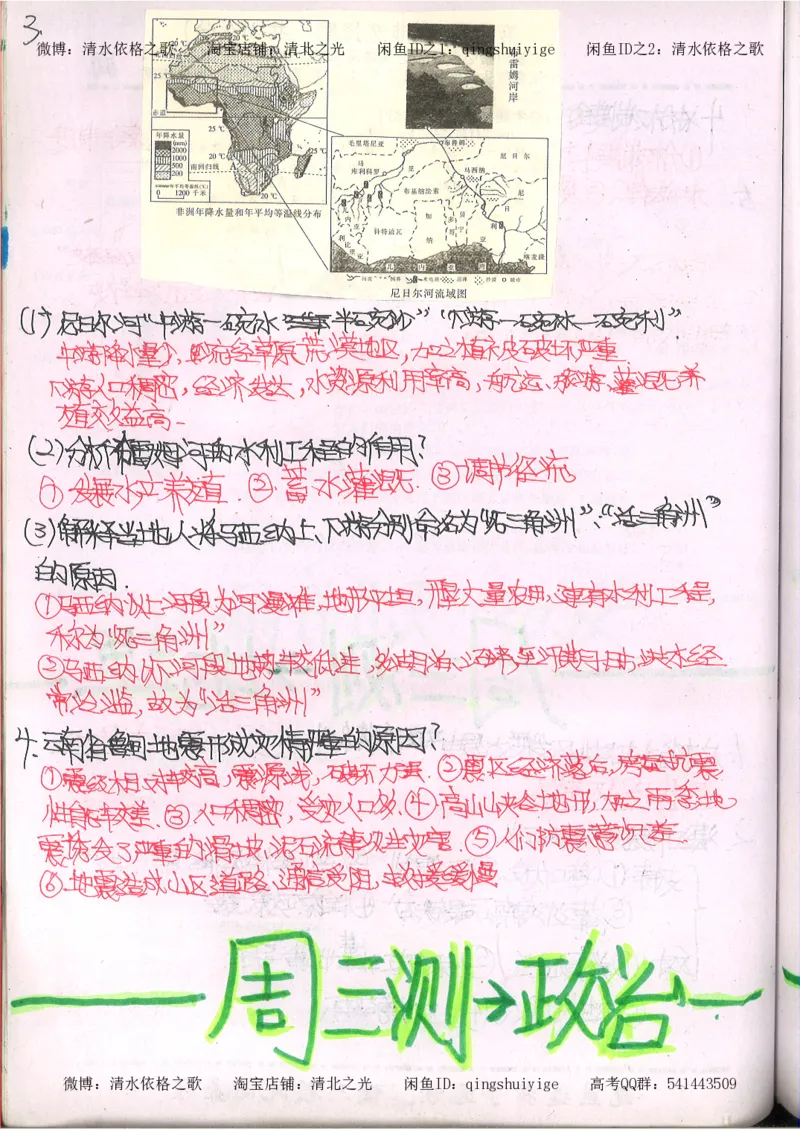 3.
微博：清水依格之歌 淘宝店铺：清北之光 闲鱼ID之1：qingshuiyige 闲鱼ID之2：清水依格之歌
雷姆河岸
25℃
赤道
年降水量
(mm)
2000
1000
500
200
25℃
20℃
南回归线
25℃
20℃
年平均等温线(℃)
0 1200 千米
非洲年降水量和年平均等温线分布
毛里塔尼亚
尼日尔
马
库利科罗
马西纳
布基纳法索
几内亚
科特迪瓦
加纳
多哥
利比里亚
尼日利亚
喀麦隆
尼日尔河流域图
(1)尼日尔河“中游一石碗水半石碗沙”“下游一石碗水一石碗利”
中游降水量少，且流经草原、荒漠地区，加之植被破坏严重
下游人口稠密，经济发达，水资源利用率高，航运、旅游、灌溉、养
殖效益高.
(2)分析雷姆河的水利工程的作用？
①发展水产养殖. ②蓄水灌溉. ③调节径流
(3)解释当地人将马西纳上、下游分别命名为“死三角洲”、“活三角洲”
的原因.
①马西纳以上河段为河漫滩，地形平坦，开垦大量农田，建有水利工程，
称为“死三角洲”
②马西纳以下河段地势较低洼，多湖泊沼泽，至汛期月份，洪水经
常泛滥，故为“活三角洲”
4.云南省鲁甸地震形成灾情严重的原因？
①震级相对较高，震源浅，破坏力强. ②震区经济落后，房屋抗震
性能较差. ③人口稠密，受灾人口多. ④高山峡谷地形，加之雨季地
震诱发了严重的滑坡、泥石流等次生灾害. ⑤人们防震意识差
⑥地震造成山区道路、通信受阻，救援缓慢
周三测→政治
微博：清水依格之歌 淘宝店铺：清北之光 闲鱼ID：qingshuiyige 高考QQ群：541443509